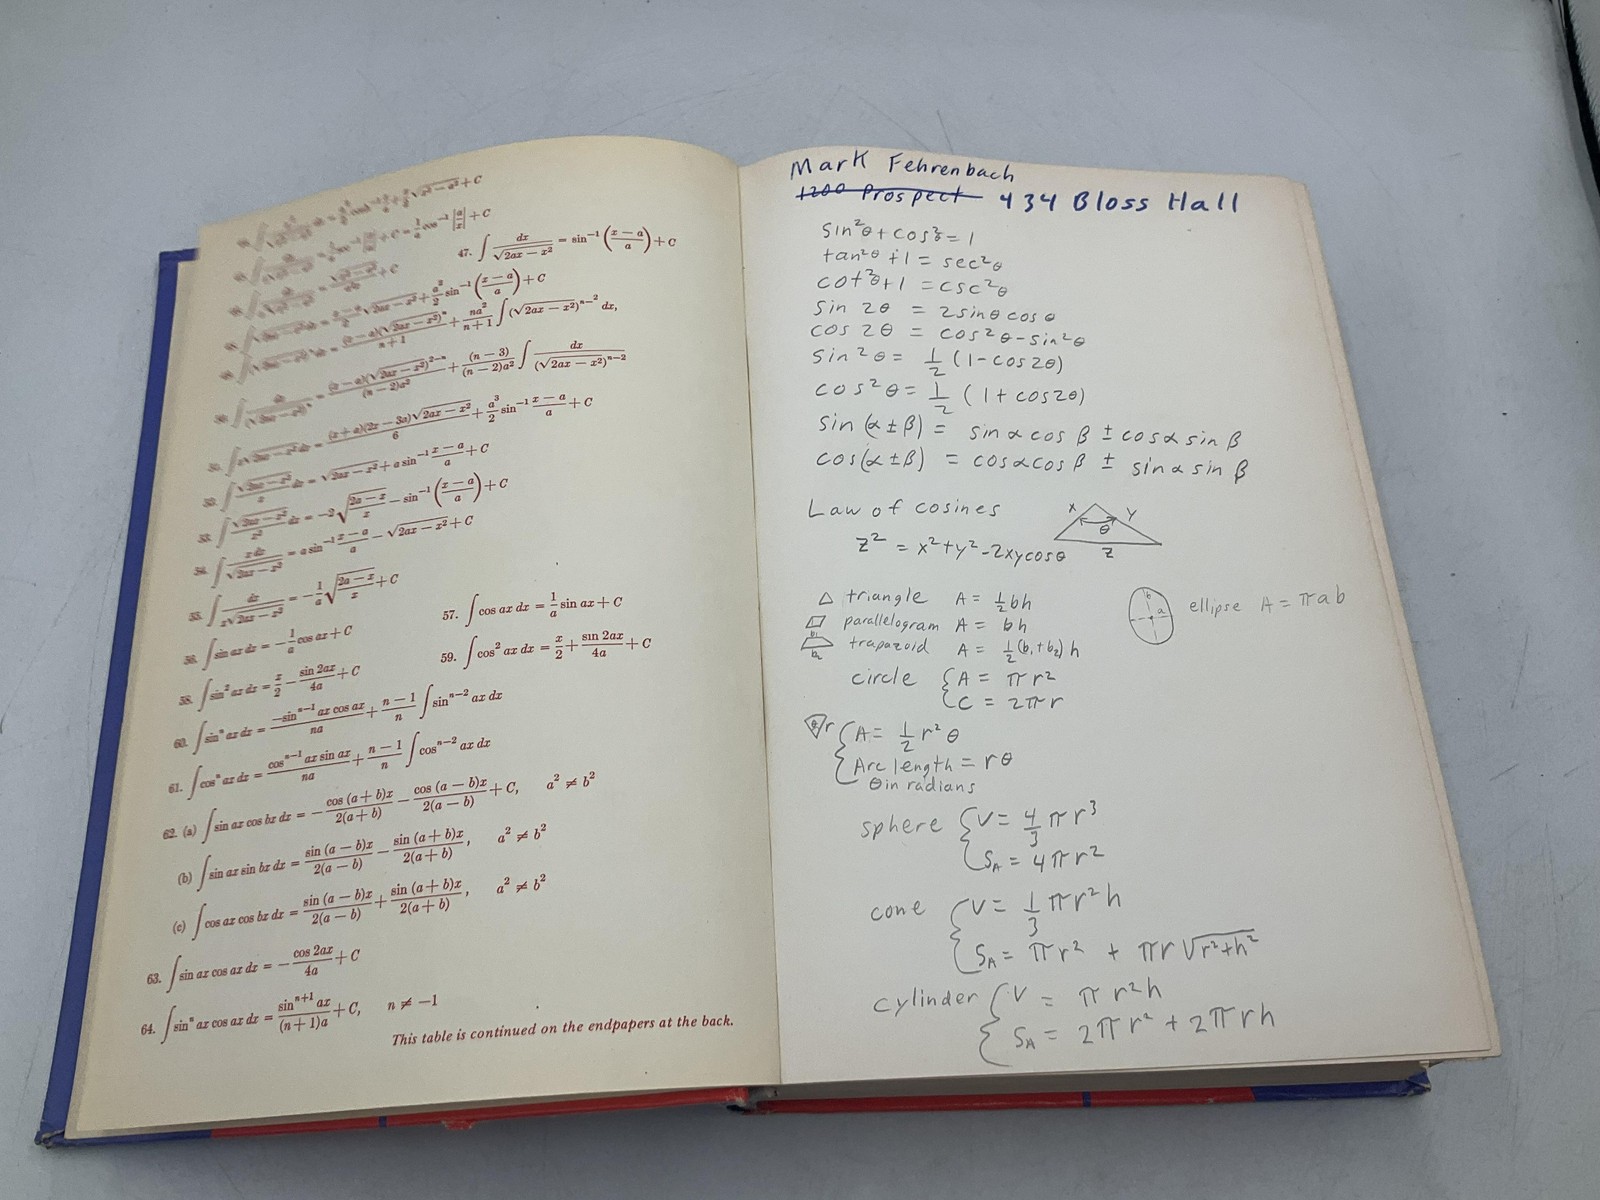 47. ∫ dx/√(2ax − x²) = sin⁻¹((x − a)/a) + C
53. ∫ √(2ax − x²)/x² dx = −2√((2a − x)/x) − sin⁻¹((x − a)/a) + C
54. ∫ x dx/√(2ax − x²) = a sin⁻¹ (x − a)/a − √(2ax − x²) + C
55. ∫ dx/(x√(2ax − x²)) = −1/a √((2a − x)/x) + C
56. ∫ sin ax dx = −1/a cos ax + C
57. ∫ cos ax dx = 1/a sin ax + C
58. ∫ sin² ax dx = x/2 − sin 2ax/4a + C
59. ∫ cos² ax dx = x/2 + sin 2ax/4a + C
60. ∫ sinⁿ ax dx = −sinⁿ⁻¹ ax cos ax/na + (n − 1)/n ∫ sinⁿ⁻² ax dx
61. ∫ cosⁿ ax dx = cosⁿ⁻¹ ax sin ax/na + (n − 1)/n ∫ cosⁿ⁻² ax dx
62. (a) ∫ sin ax cos bx dx = −cos (a + b)x/2(a + b) − cos (a − b)x/2(a − b) + C, a² ≠ b²
(b) ∫ sin ax sin bx dx = sin (a − b)x/2(a − b) − sin (a + b)x/2(a + b), a² ≠ b²
(c) ∫ cos ax cos bx dx = sin (a − b)x/2(a − b) + sin (a + b)x/2(a + b), a² ≠ b²
63. ∫ sin ax cos ax dx = −cos 2ax/4a + C
64. ∫ sinⁿ ax cos ax dx = sinⁿ⁺¹ ax/(n + 1)a + C, n ≠ −1
This table is continued on the endpapers at the back.
Mark Fehrenbach
1200 Prospect 434 Bloss Hall
sin²θ + cos²θ = 1
tan²θ + 1 = sec²θ
cot²θ + 1 = csc²θ
sin 2θ = 2sinθ cosθ
cos 2θ = cos²θ - sin²θ
sin²θ = 1/2 (1 - cos2θ)
cos²θ = 1/2 (1 + cos2θ)
sin (α ± β) = sin α cos β ± cos α sin β
cos(α ± β) = cos α cos β ± sin α sin β
Law of cosines
x y θ z
z² = x² + y² - 2xycosθ
triangle A = 1/2 bh
parallelogram A = bh
trapazoid A = 1/2 (b₁ + b₂) h
b a ellipse A = πab
circle A = πr²
C = 2πr
θ r A = 1/2 r²θ
Arc length = rθ
θ in radians
sphere V = 4/3 πr³
S_A = 4πr²
cone V = 1/3 πr²h
S_A = πr² + πr√(r² + h²)
cylinder V = πr²h
S_A = 2πr² + 2πrh